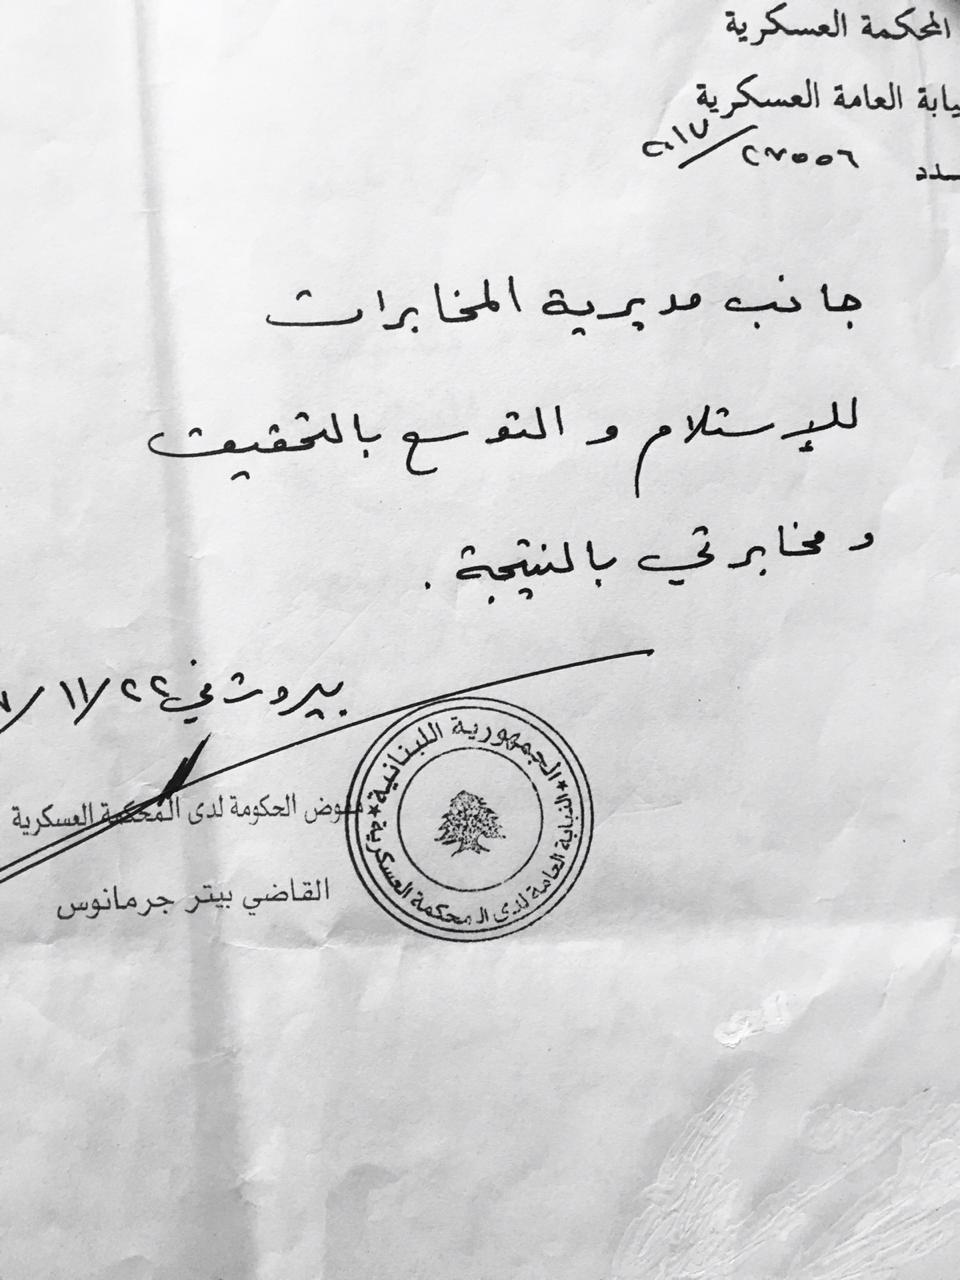 المحكمة العسكرية
يابة العامة العسكرية
ـدد ٢٧٥٥٦/٢٠١٧
جانب مديرية المخابرات
للإستلام و التوسع بالتحقيق
و مخابرتي بالنتيجة .
بيروت في ٢٢/١١/٧
مفوض الحكومة لدى المحكمة العسكرية
القاضي بيتر جرمانوس
الجمهورية اللبنانية
النيابة العامة لدى المحكمة العسكرية